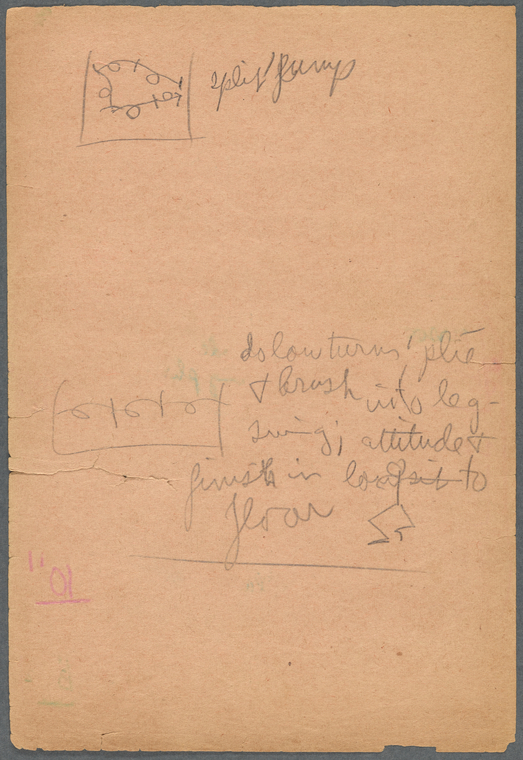 split jump
slow turns, plié
& brush into leg-
swing; attitude &
finish in to
floor
10"